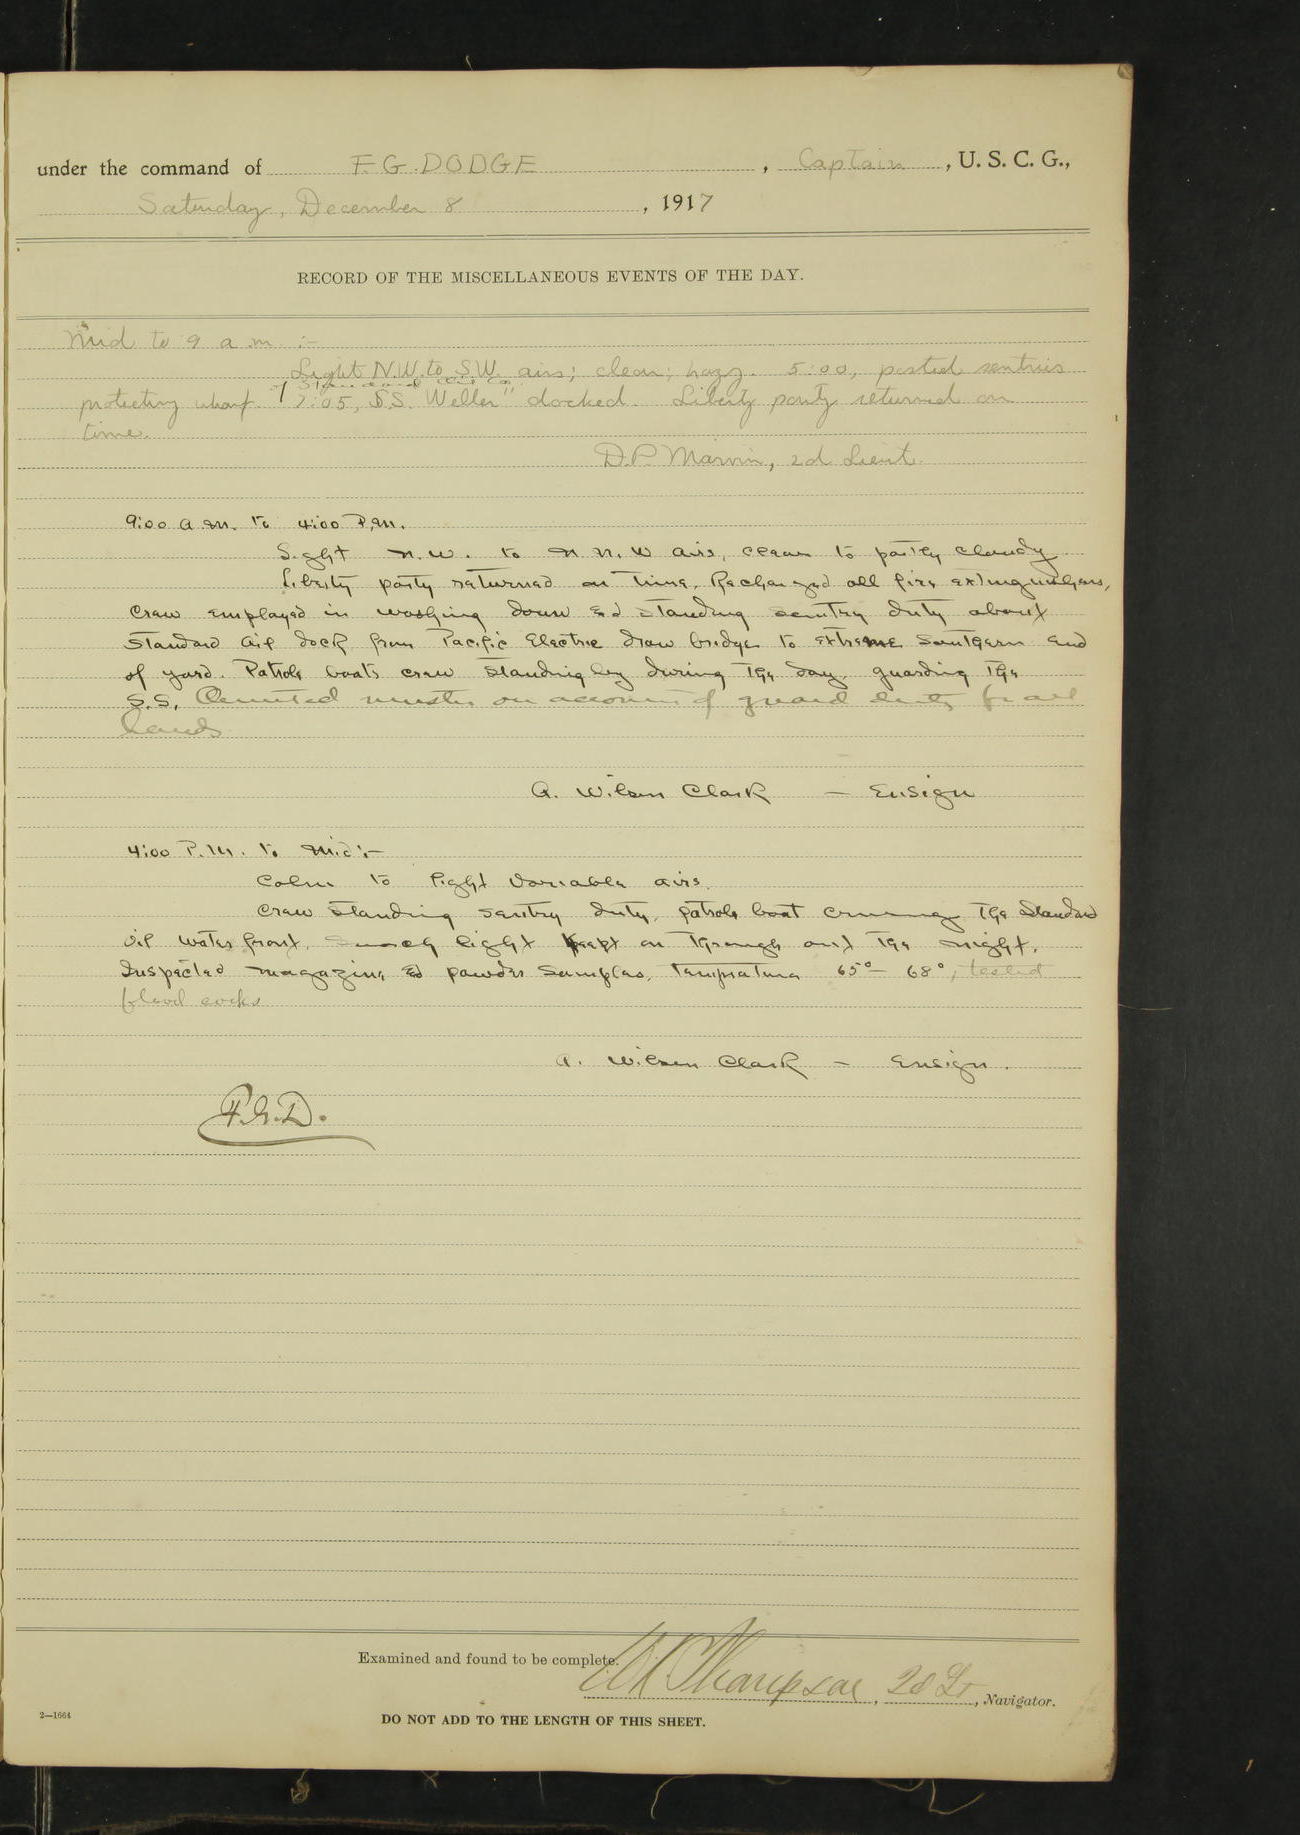 under the command of F. G. DODGE, Captain, U. S. C. G.,
Saturday, December 8, 1917
RECORD OF THE MISCELLANEOUS EVENTS OF THE DAY.
Mid to 9 a.m. :-
Light N.W. to S.W. airs; clear; hazy. 5:00, posted sentries
of Standard Oil Co.
protecting wharf. 7:05, S.S. "Weller" docked. Liberty party returned on
time.
D.P. Marvin, 2d Lieut.
9:00 a.m. to 4:00 P.M.
Light N.W. to N.N.W airs, clear to partly cloudy
Liberty party returned on time. Recharged all fire extinguishers,
Crew employed in washing down and standing sentry duty about
Standard Oil dock from Pacific Electric draw bridge to extreme Southern end
of yard. Patrole boats crew standing by during the day. guarding the
S.S. Omitted muster on account of guard duty for all
hands
A. Wilson Clark — Ensign
4:00 P.M. to Mid:-
Calm to light variable airs.
Crew standing sentry duty, patrole boat cruising the Standard
Oil water front, Search light kept on through out the night.
Inspected magazine and powder samples, temprature 65°- 68°; tested
flood cocks
A. Wilson Clark — Ensign.
F.G.D.
Examined and found to be complete.
Thompson, 2d Lt, Navigator.
2—1664
DO NOT ADD TO THE LENGTH OF THIS SHEET.